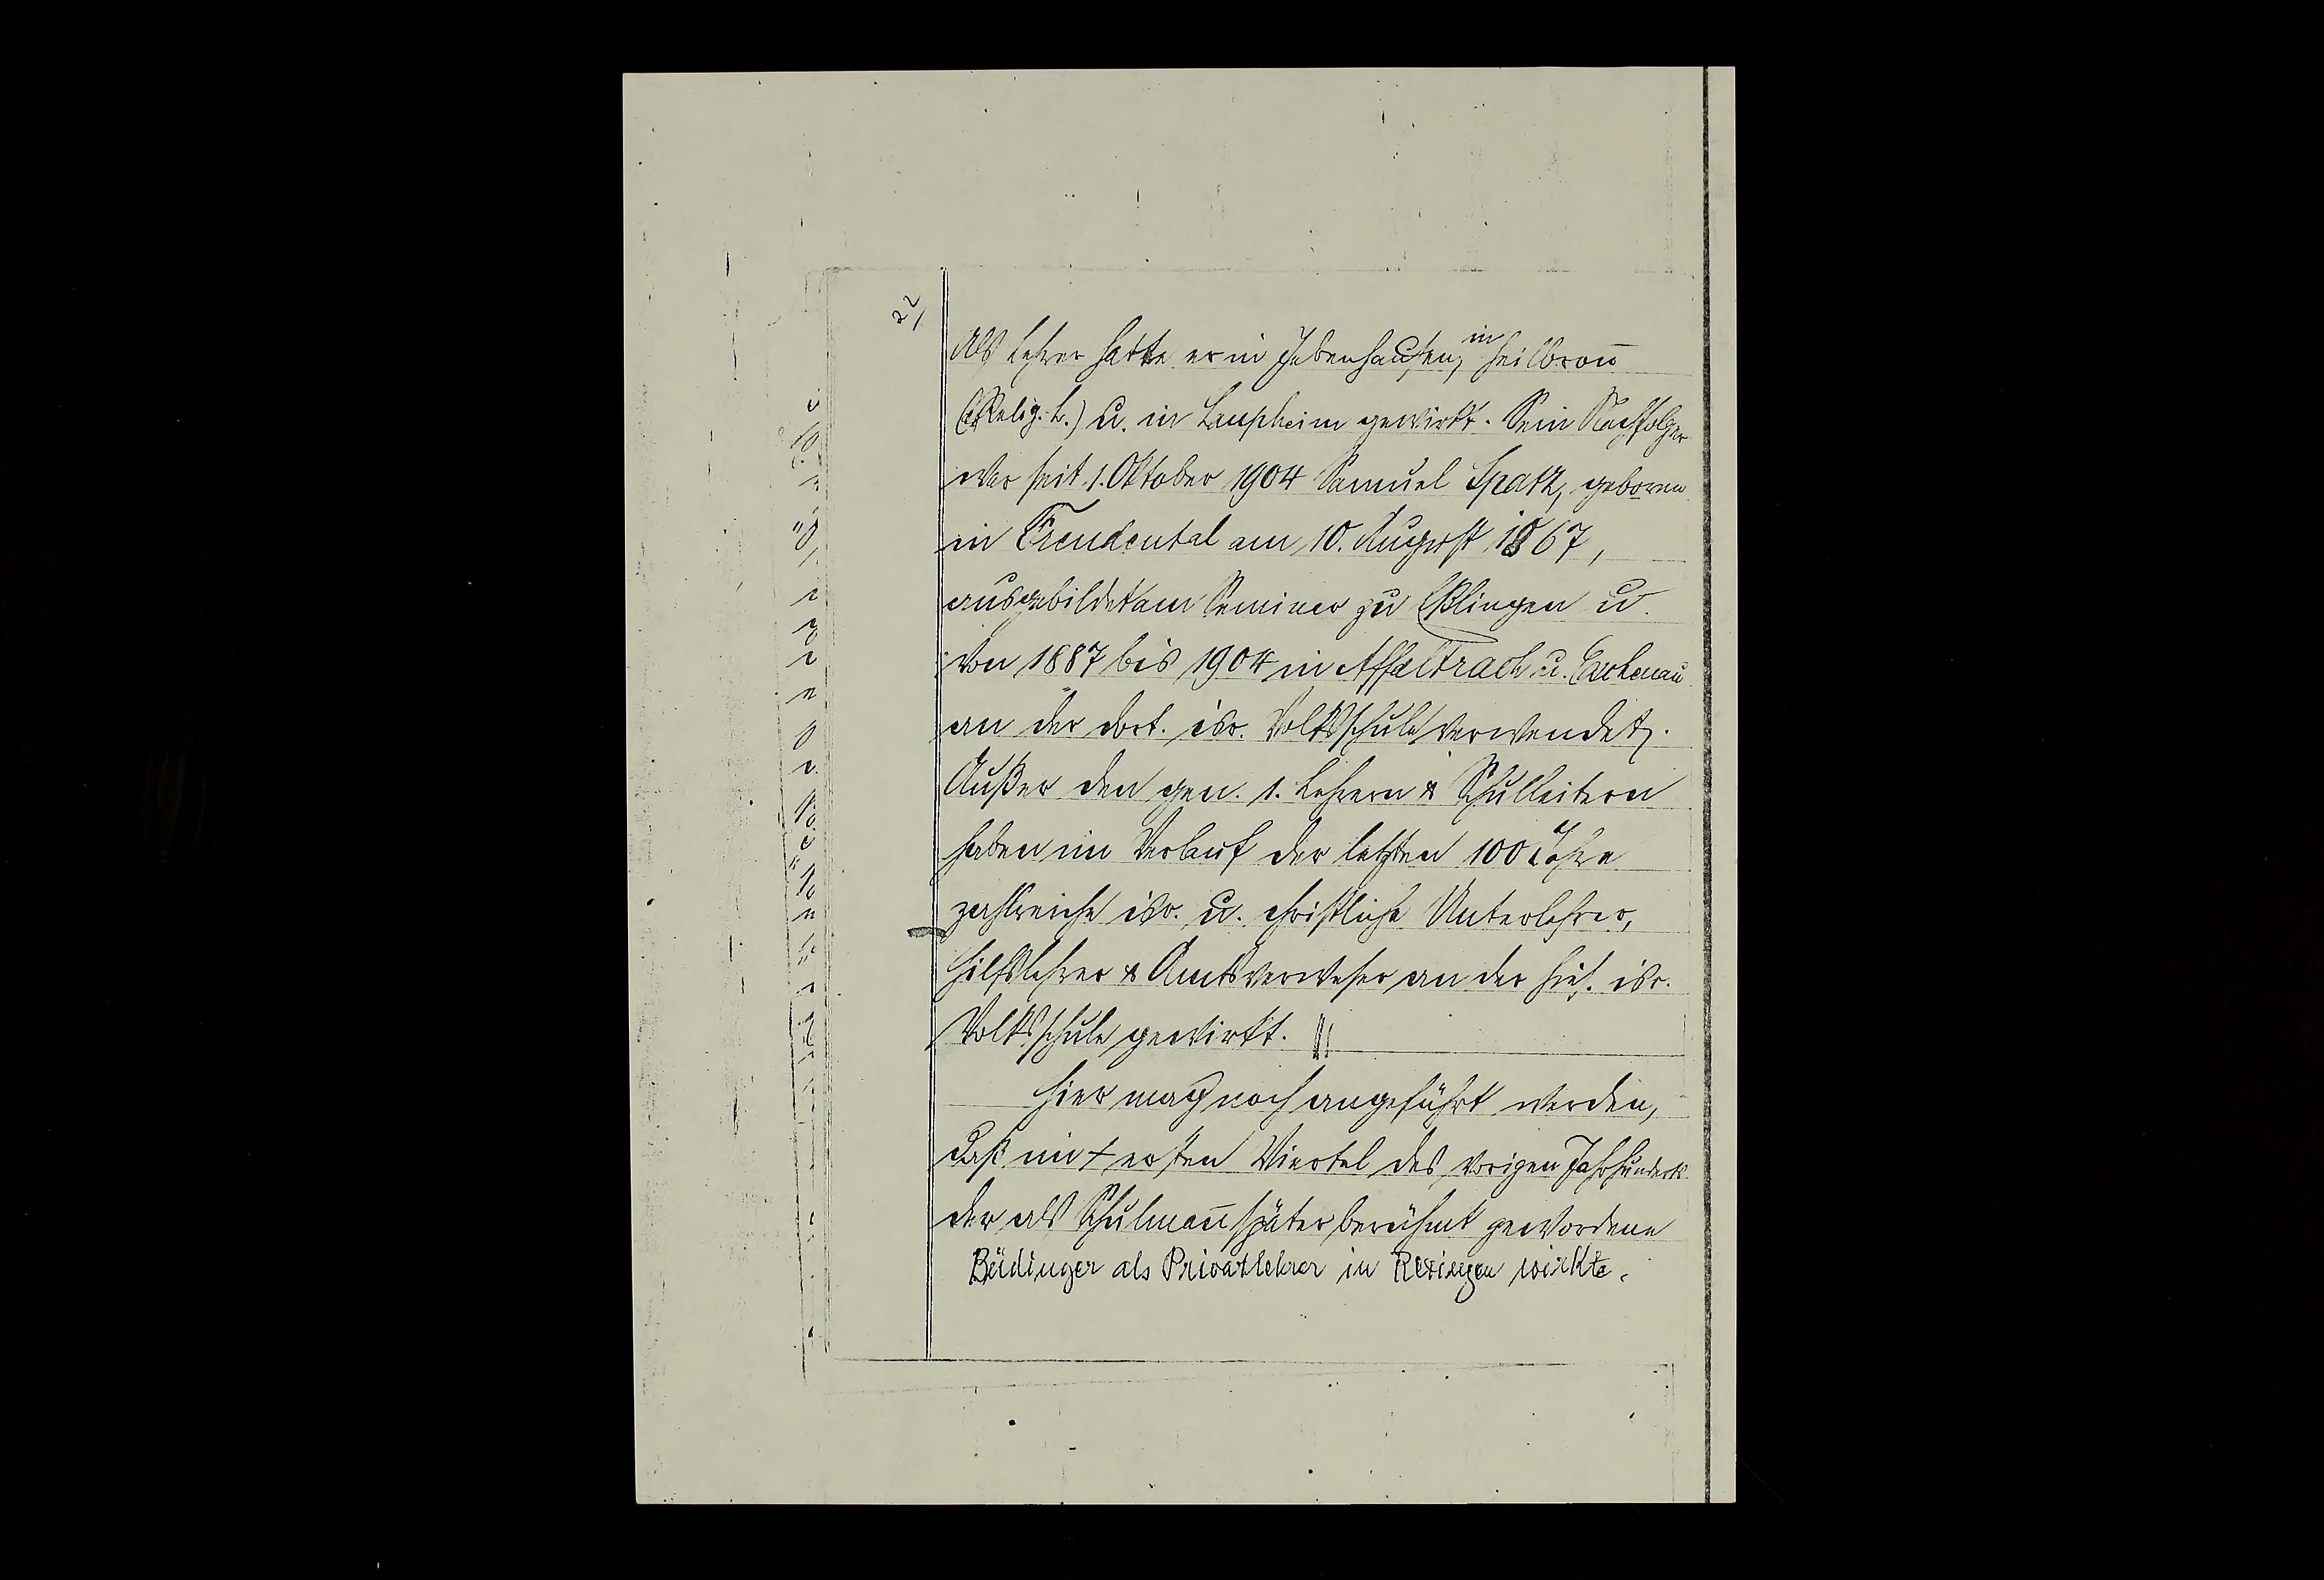 22/
Als Lehrer hatte er in Jebenhausen, in Heilbronn
(Relig.-L.) u. in Laupheim gewirkt. Sein Nachfolger
war seit 1. Oktober 1904 Samuel Spatz, geboren
in Freudental am 10. August 1867,
ausgebildet am Seminar zu Eßlingen u.
von 1887 bis 1904 in Affaltrach u. Eschenau
an der dort. isr. Volksschule verwendet.
Außer den gen. 1. Lehrern & Schulleitern
haben im Verlauf der letzten 100 Jahre
zahlreiche isr. u. christliche Unterlehrer,
Hilfslehrer & Amtsverweser an der hies. isr.
Volksschule gewirkt.
Hier mag noch angeführt werden,
daß im ersten Viertel des vorigen Jahrhunderts
der als Schulmann später berühmt gewordene
Büdinger als Privatlehrer in Rexingen wirkte.